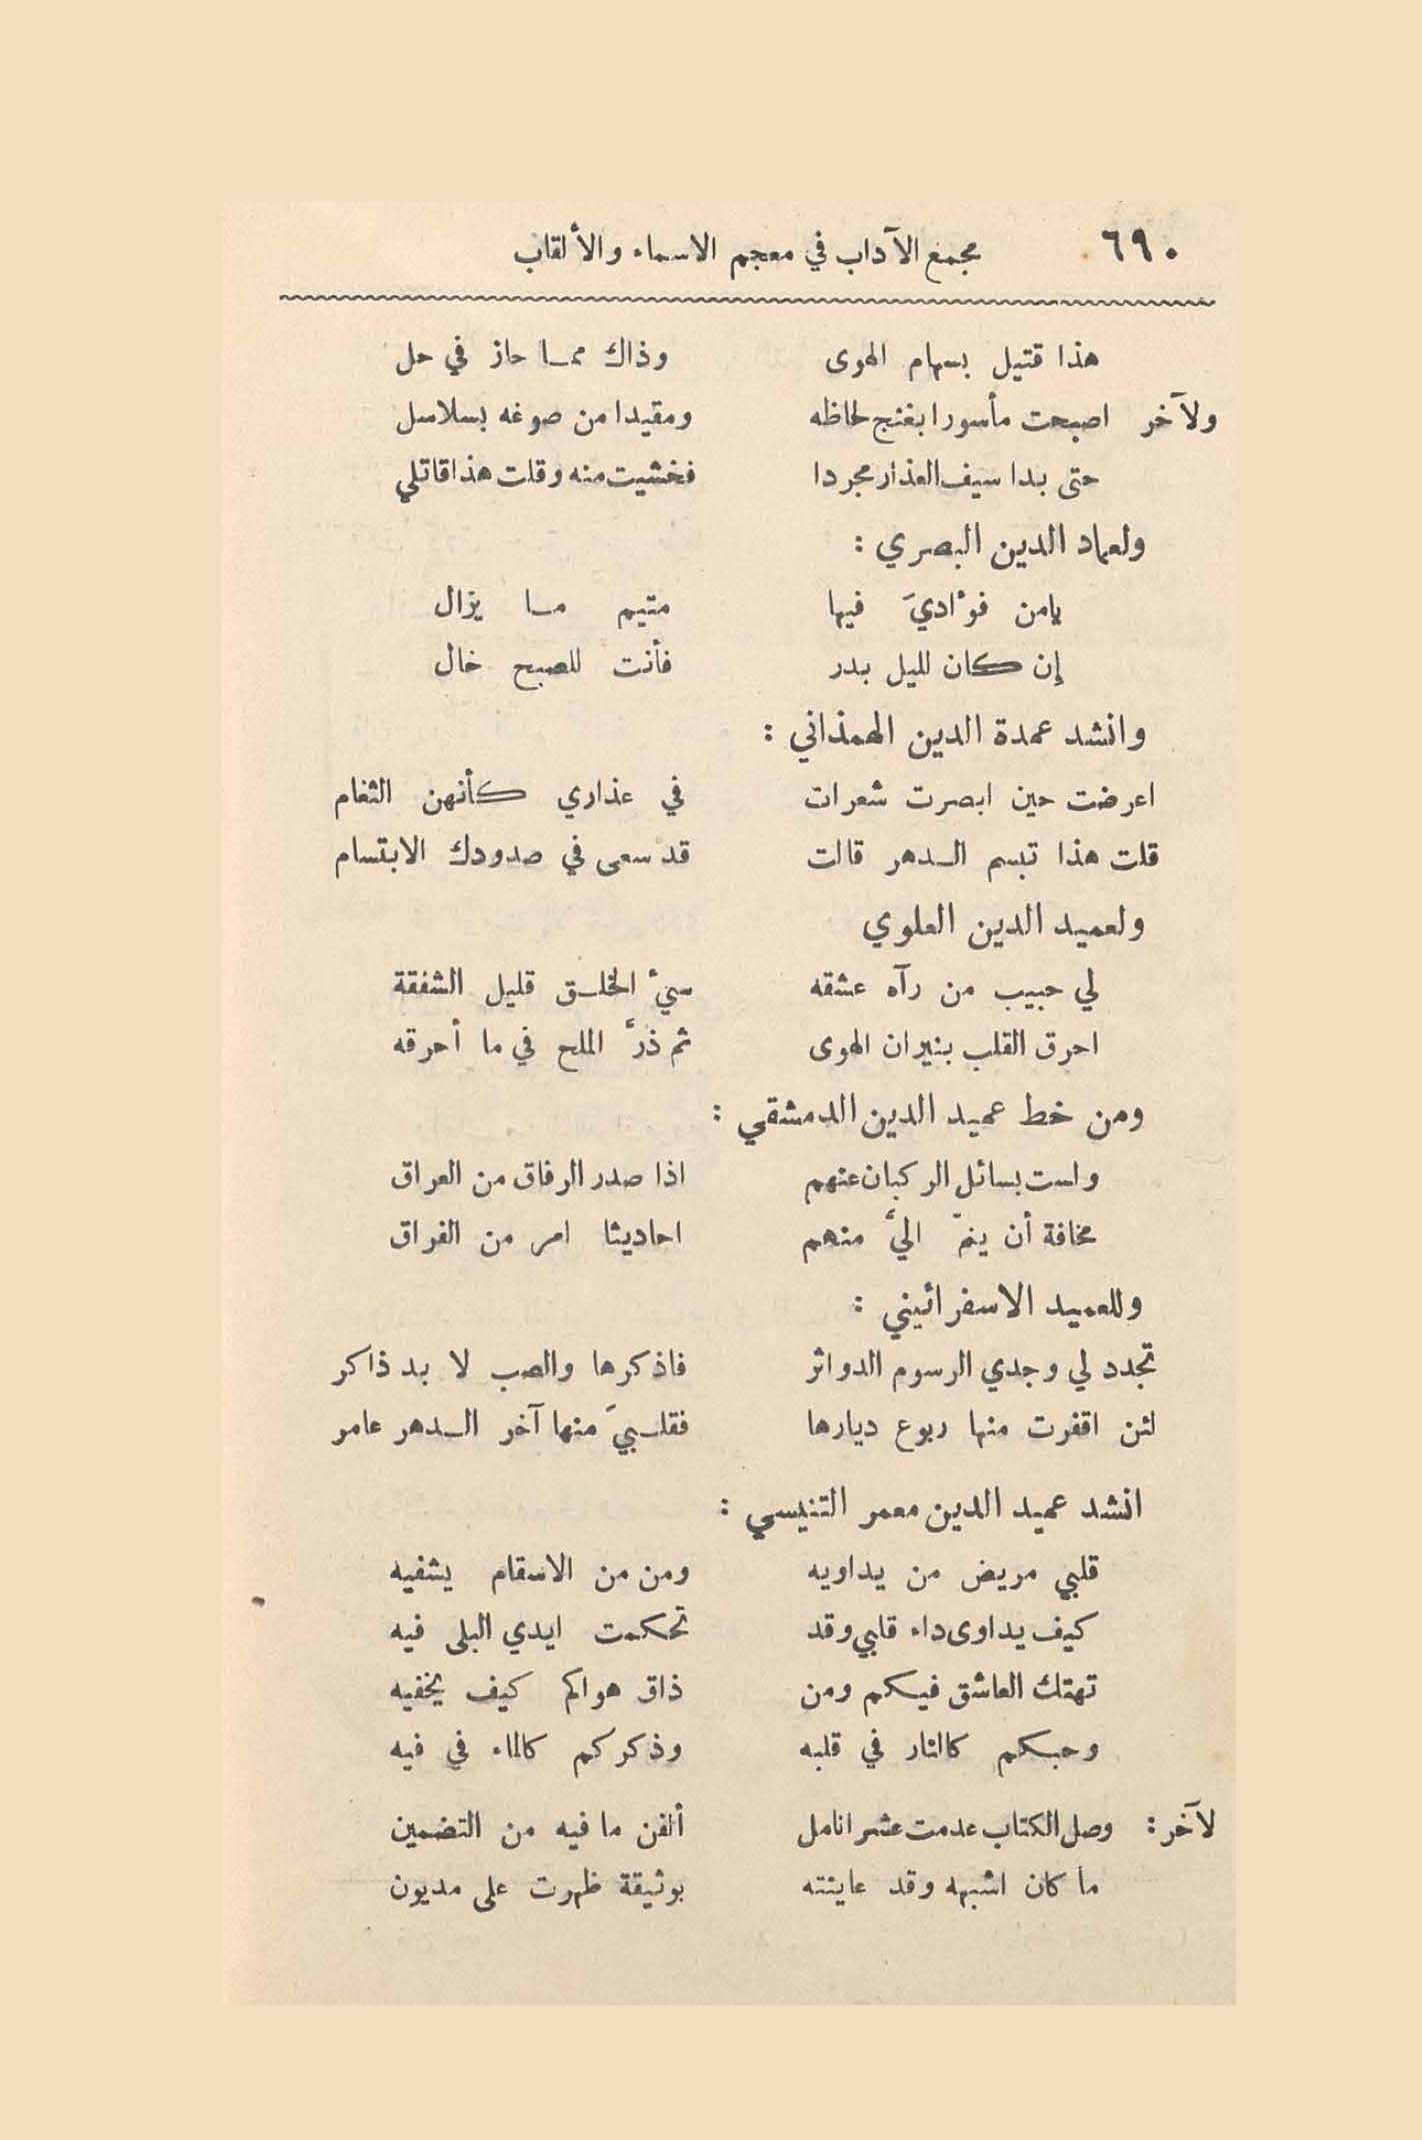 ٦٩٠ مجمع الآداب في معجم الاسماء والألقاب
هذا قتيل بسهام الهوى وذاك ممـا حاز في حل
ولآخر اصبحت مأسورا بغنج لحاظه ومقيدا من صوغه بسلاسل
حتى بدا سيف العذار مجردا فخشيت منه وقلت هذا قاتلي
ولعماد الدين البصري :
يامن فوٴاديَ فيها متيم مـا يزال
إن كان لليل بدر فأنت للصبح خال
وانشد عمدة الدين الهمذاني :
اعرضت حين ابصرت شعرات في عذاري كأنهن الثغام
قلت هذا تبسم الـدهر قالت قد سعى في صدودك الابتسام
ولعميد الدين العلوي
لي حبيب من رآه عشقه سيٴ الخلـق قليل الشفقة
احرق القلب بنيران الهوى ثم ذرَّ الملح في ما أحرقه
ومن خط عميد الدين الدمشقي :
ولست بسائل الركبان عنهم اذا صدر الرفاق من العراق
مخافة أن ينمّ اليَّ منهم احاديثا امر من الفراق
وللعميد الاسفرائيني :
تجدد لي وجدي الرسوم الدواثر فاذكرها والصب لا بد ذاكر
لئن اقفرت منها ربوع ديارها فقلـبيَ منها آخر الـدهر عامر
انشد عميد الدين معمر التنيسي :
قلبي مريض من يداويه ومن من الاسقام يشفيه
كيف يداوى داء قلبي وقد تحكمت ايدي البلى فيه
تهتك العاشق فيكم ومن ذاق هواكم كيف يخفيه
وحبكم كالنار في قلبه وذكركم كالماء في فيه
لآخر : وصل الكتاب عدمت عشر انامل ألفن ما فيه من التضمين
ما كان اشبهه وقد عاينته بوثيقة ظهرت على مديون